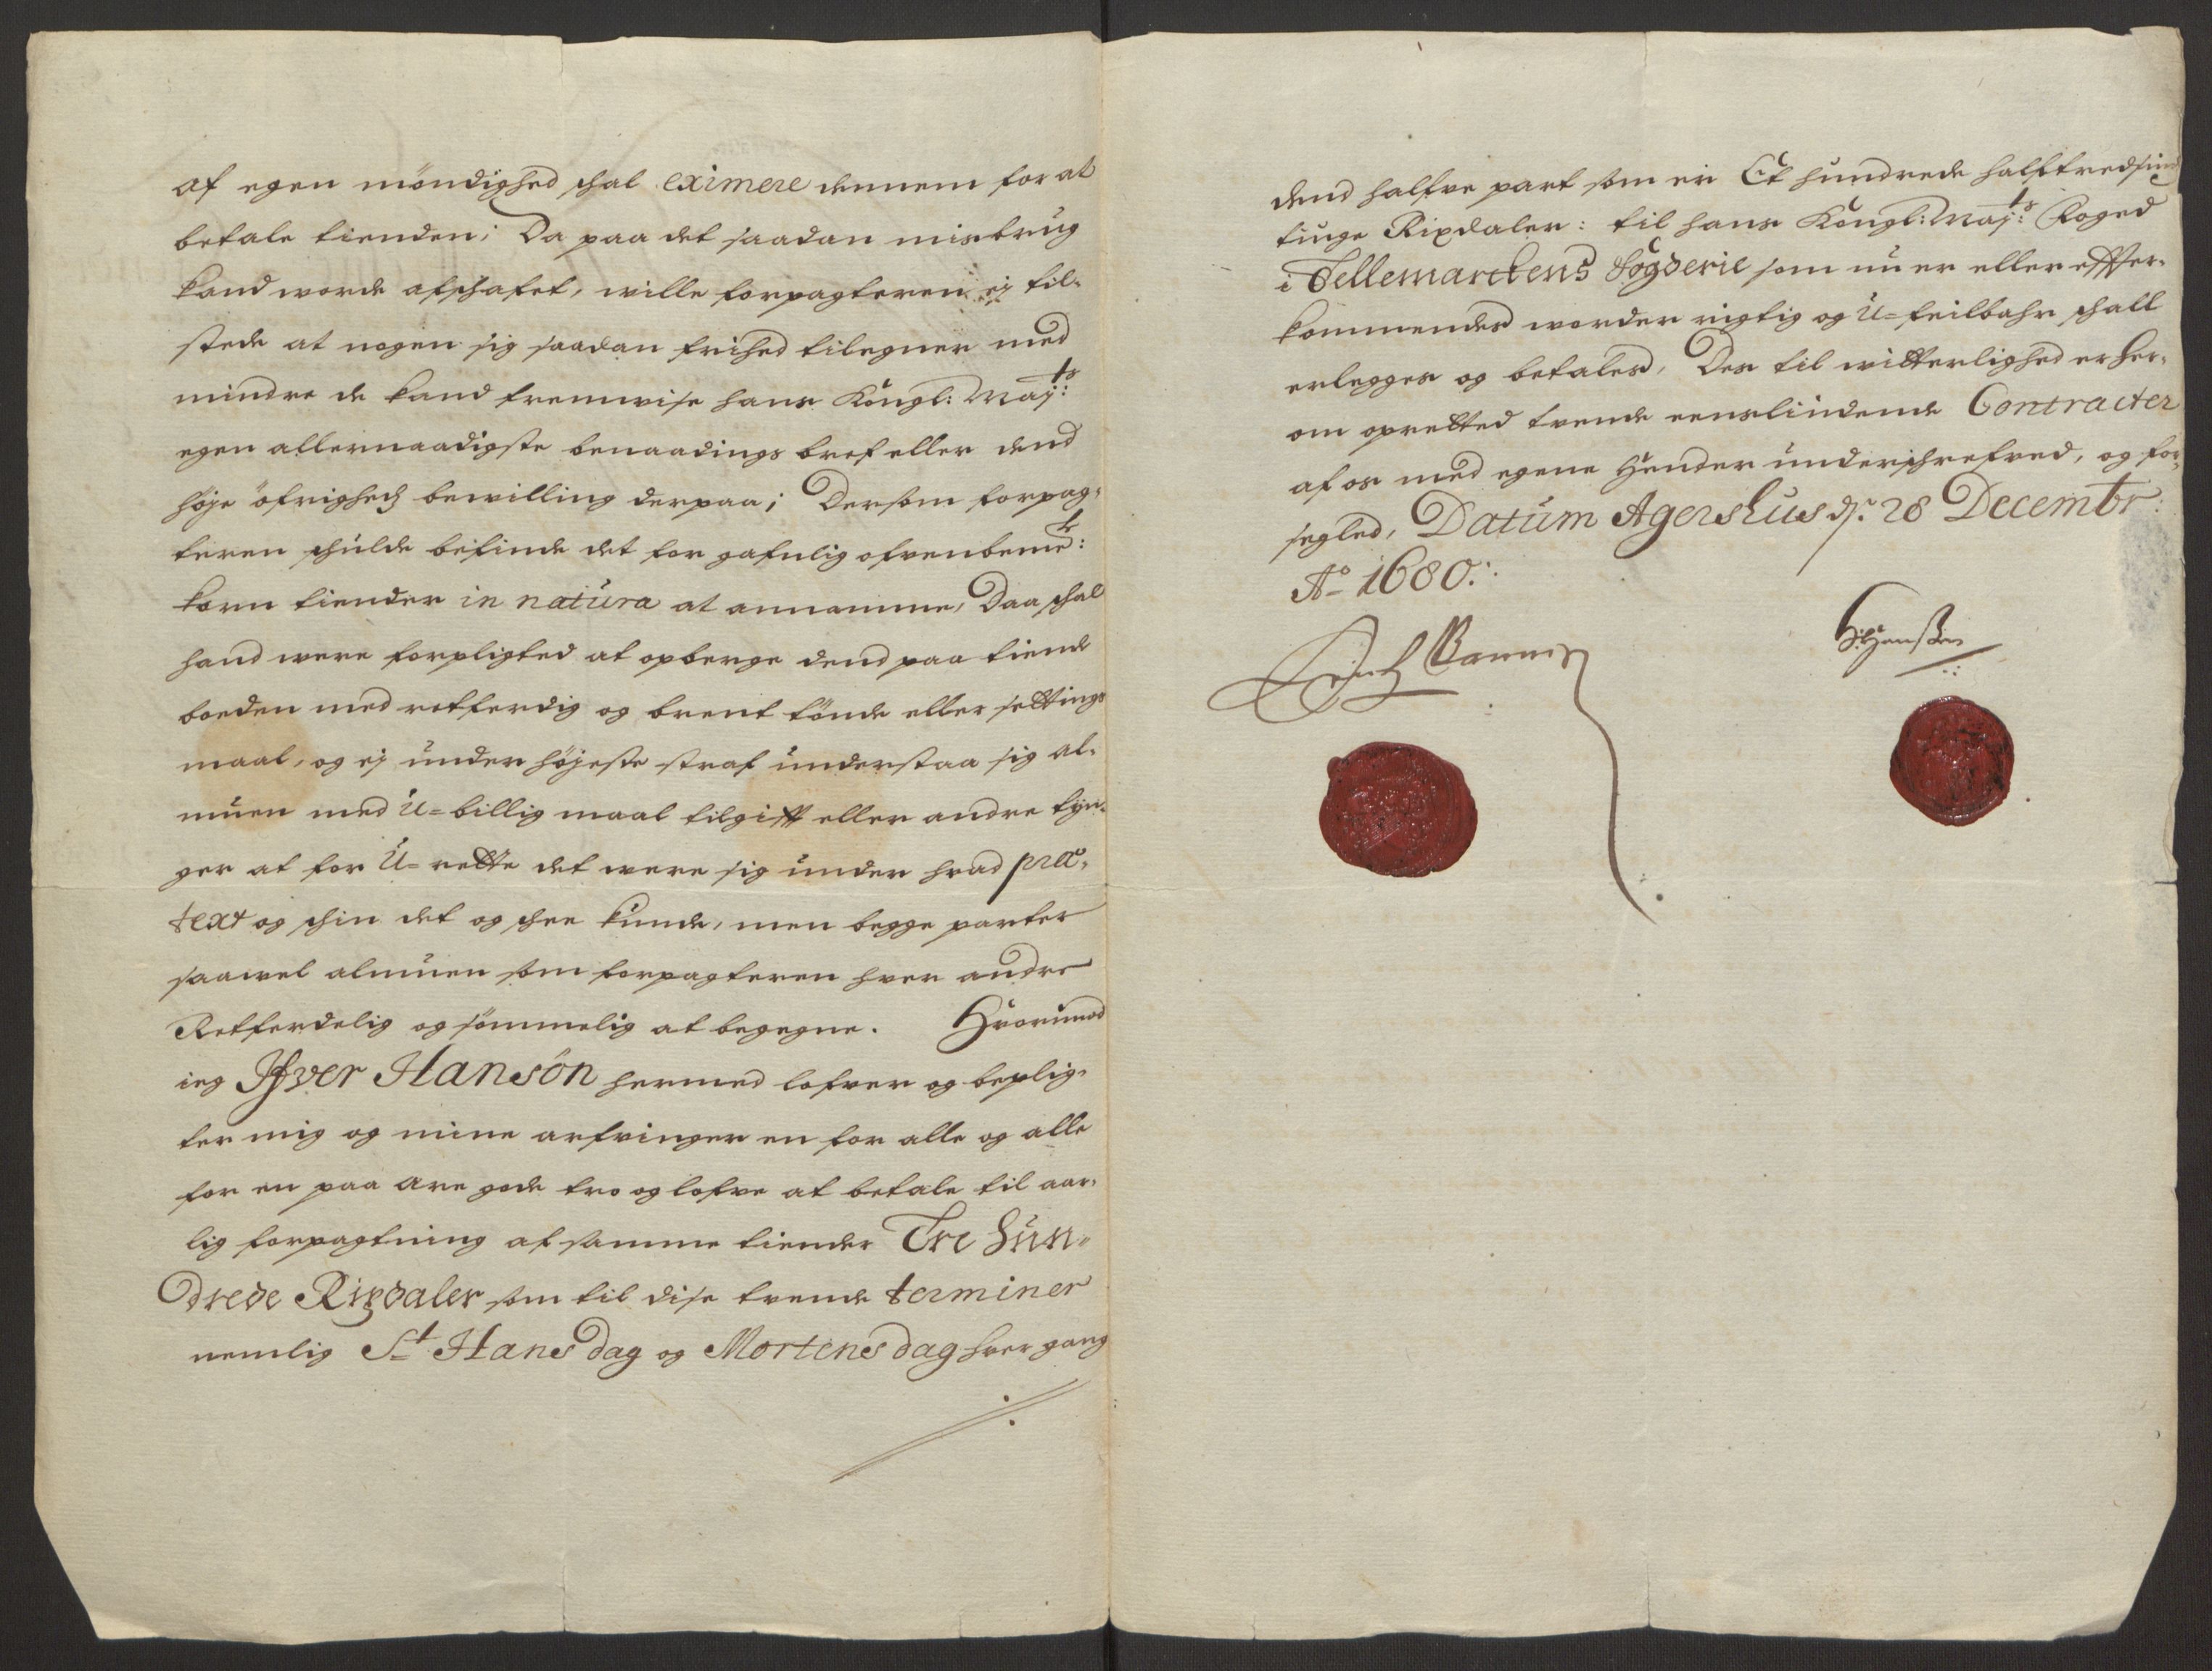 af egen möndighed schal eximere dennem for at
betale tienden; Da paa det saadan misbrug
kand worde afschafet, wille forpagteren ej til-
stede at nogen sig saadan frihed tilegner med
mindre de kand fremwise hans Kongl: Maj:ts
egen allernaadigste benaadings bref eller dend
höje öfrigheds bewilling derpaa; Dersom forpag-
teren schulde befinde det for gafnlig ofvenbem:te
korn tiender in natura at annamme, Daa schal
hand were forpligted at opberge dend paa tiende
boeden med retferdig og brent tönde eller settings
maal, og ej under höjeste straf understaa sig al-
muen med U=billig maal tilgifft eller andre tyn-
ger at for U=rette det were sig under hvad præ-
text og schin det og schee kunde, men begge parter
saawel almuen som forpagteren hver andre
Retferdelig og sömmelig at begegne. Hvorimod
ieg Ifver Hansön hermed lofver og beplig-
ter mig og mine arfvinger en for alle og alle
for en paa ære gode tro og lofve at betale til aar-
lig forpagtning af samme tiender Tre Hun-
drede Rixdaler som til dise tvende terminer
nemlig St Hans dag og Mortens dag hver gang
dend halfve part som er Et hundrede halftredsinds
tiuge Rixdaler: til hans Kongl: Maj:ts Foged
i Tellemarckens fögderie som nu er eller effter-
kommendes worder rigtig og U=feilbahr schall
erlegges og betales, Des til witterlighed er her-
om opretted tvende eenslindende Contracter
af os med egene Hender underschrefved, og for-
segled, Datum Agershus d. 28 Decembr:
Ao 1680.